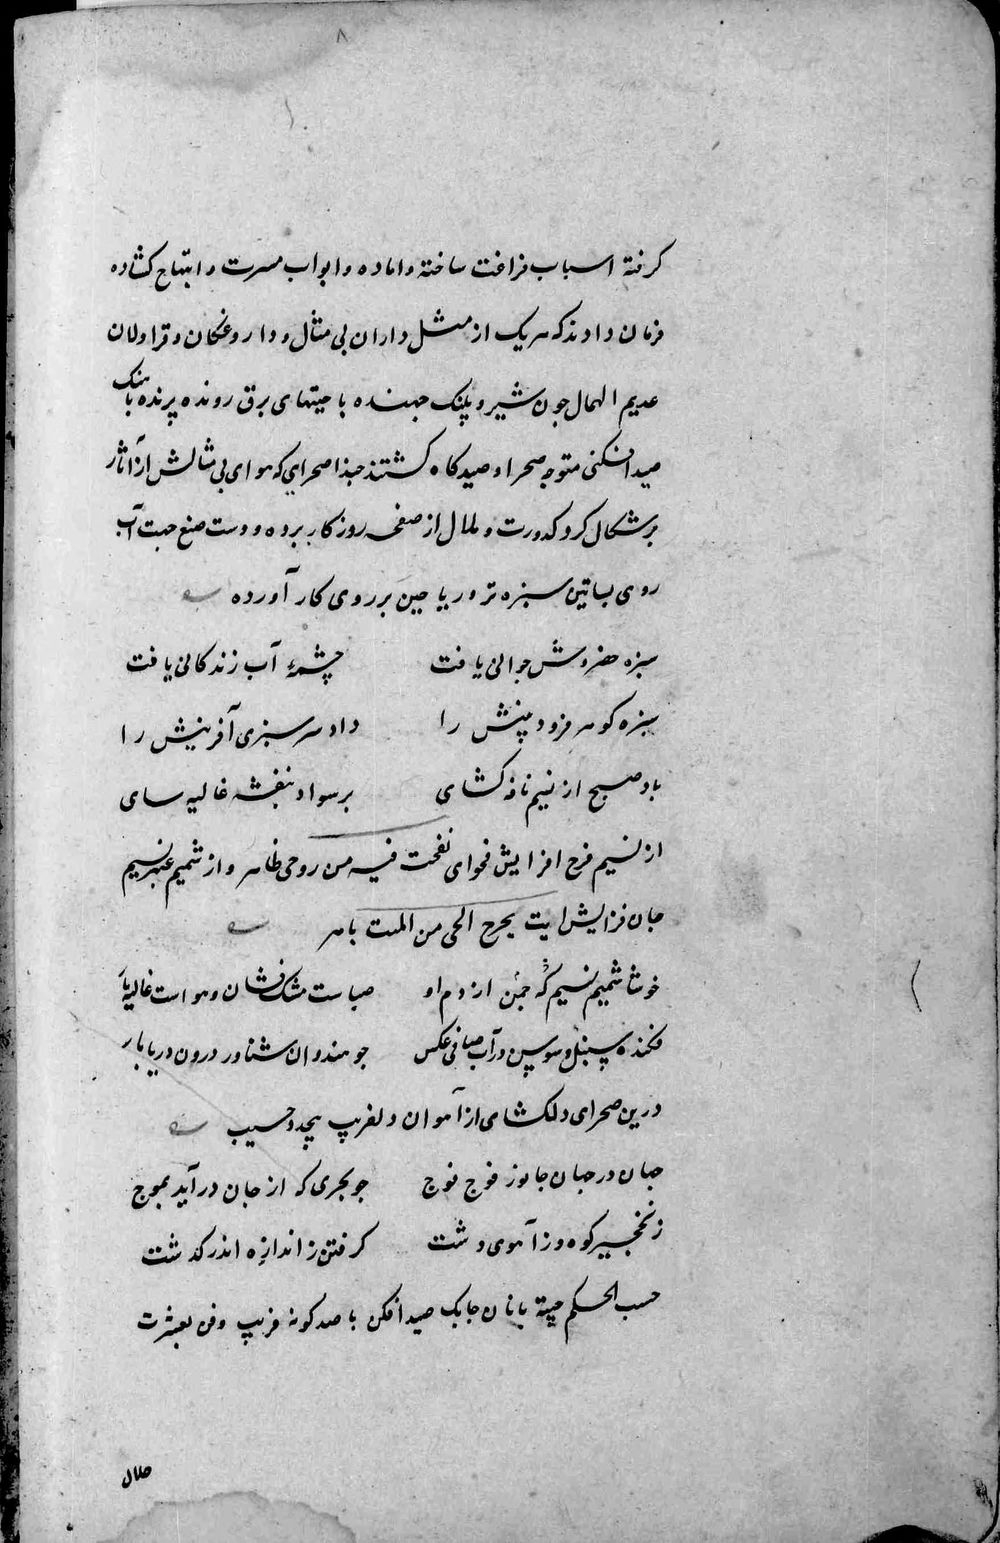 ۸
کرفته اسباب فراغت ساخته و اماده و ابواب مسرت و ابتهاج کشاده
فرمان دادند که هریک از مثل داران بی مثال و داروغکان و قراولان
عدیم الهمال چون شیر و پلنک جهنده با چیتهای برق رونده پرنده باهنک
صید افکنی متوجه صحرا و صید کاه کشتند حبذا صحرای که هوای بی مثالش از آثار
برشکال کرد کدورت و ملال از صفحه روزکار برده و دست صنع جهت آب
روی بساتین سبزه تر و ریاحین بر روی کار آورده
سبزه خضروش جوانی یافت چشمهٔ آب زندکانی یافت
سبزه کوهر فزود بینش را داد سرسبزی آفرینش را
باد صبح از نسیم نافه کشای بر سواد بنفشه غالیه سای
از نسیم فرح افزایش فحوای نفخت فیه من روحی ظاهر و از شمیم عنبر نسیم
جان فزایش ایت یخرج الحی من المیت باهر
خوشا شمیم نسیم که چمن از دم او صباست مشک فشان و هواست غالیه بار
فکنده سنبل و سوسن در آب صافی عکس چو هندوان شناور درون دریابار
درین صحرای دلکشای از آهوان دلفریب بیحد و حسیب
جهان در جهان جانور فوج فوج چو بحری که از جان در آید بموج
ز نخجیر کوه و ز آهوی دشت کرفتن ز اندازه اندر کذشت
حسب الحکم چیته بانان چابک صید افکن با صد کونه فریب و فن بعشرت
حلال